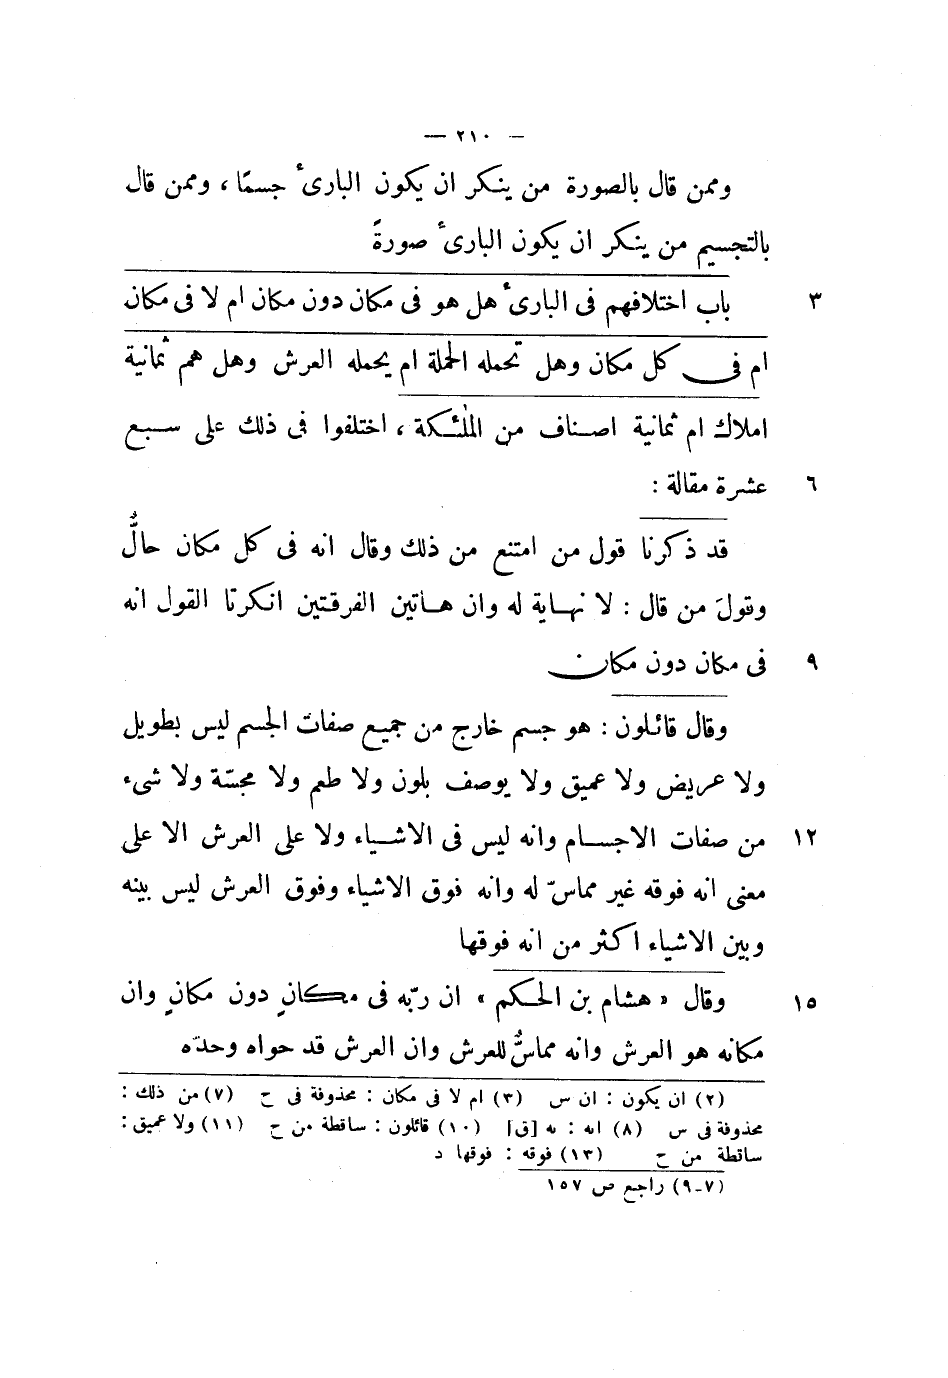 — ٢١٠ —
وممن قال بالصورة من ينكر ان يكون البارئ جسمًا ، وممن قال
بالتجسيم من ينكر ان يكون البارئ صورةً
٣ باب اختلافهم فى البارئ هل هو فى مكان دون مكان ام لا فى مكان
ام فى كل مكان وهل تحمله الحملة ام يحمله العرش وهل هم ثمانية
املاك ام ثمانية اصناف من الملٰئكة ، اختلفوا فى ذلك على سبع
٦ عشرة مقالة :
قد ذكرنا قول من امتنع من ذلك وقال انه فى كل مكان حالٌّ
وقولَ من قال : لا نهاية له وان هاتين الفرقتين انكرتا القول انه
٩ فى مكان دون مكان
وقال قائلون : هو جسم خارج من جميع صفات الجسم ليس بطويل
ولا عريض ولا عميق ولا يوصف بلون ولا طعم ولا مجسّة ولا شىء
١٢ من صفات الاجسام وانه ليس فى الاشياء ولا على العرش الا على
معنى انه فوقه غير مماسّ له وانه فوق الاشياء وفوق العرش ليس بينه
وبين الاشياء اكثر من انه فوقها
١٥ وقال « هشام بن الحكم » ان ربّه فى مكانٍ دون مكانٍ وان
مكانه هو العرش وانه مماسٌّ للعرش وان العرش قد حواه وحدّه
(٢) ان يكون : ان س (٣) ام لا فى مكان : محذوفة فى ح (٧) من ذلك :
محذوفة فى س (٨) انه : به [ق] (١٠) قائلون : ساقطة من ح (١١) ولا عميق :
ساقطة من ح (١٣) فوقه : فوقها د
(٧-٩) راجع ص ١٥٧